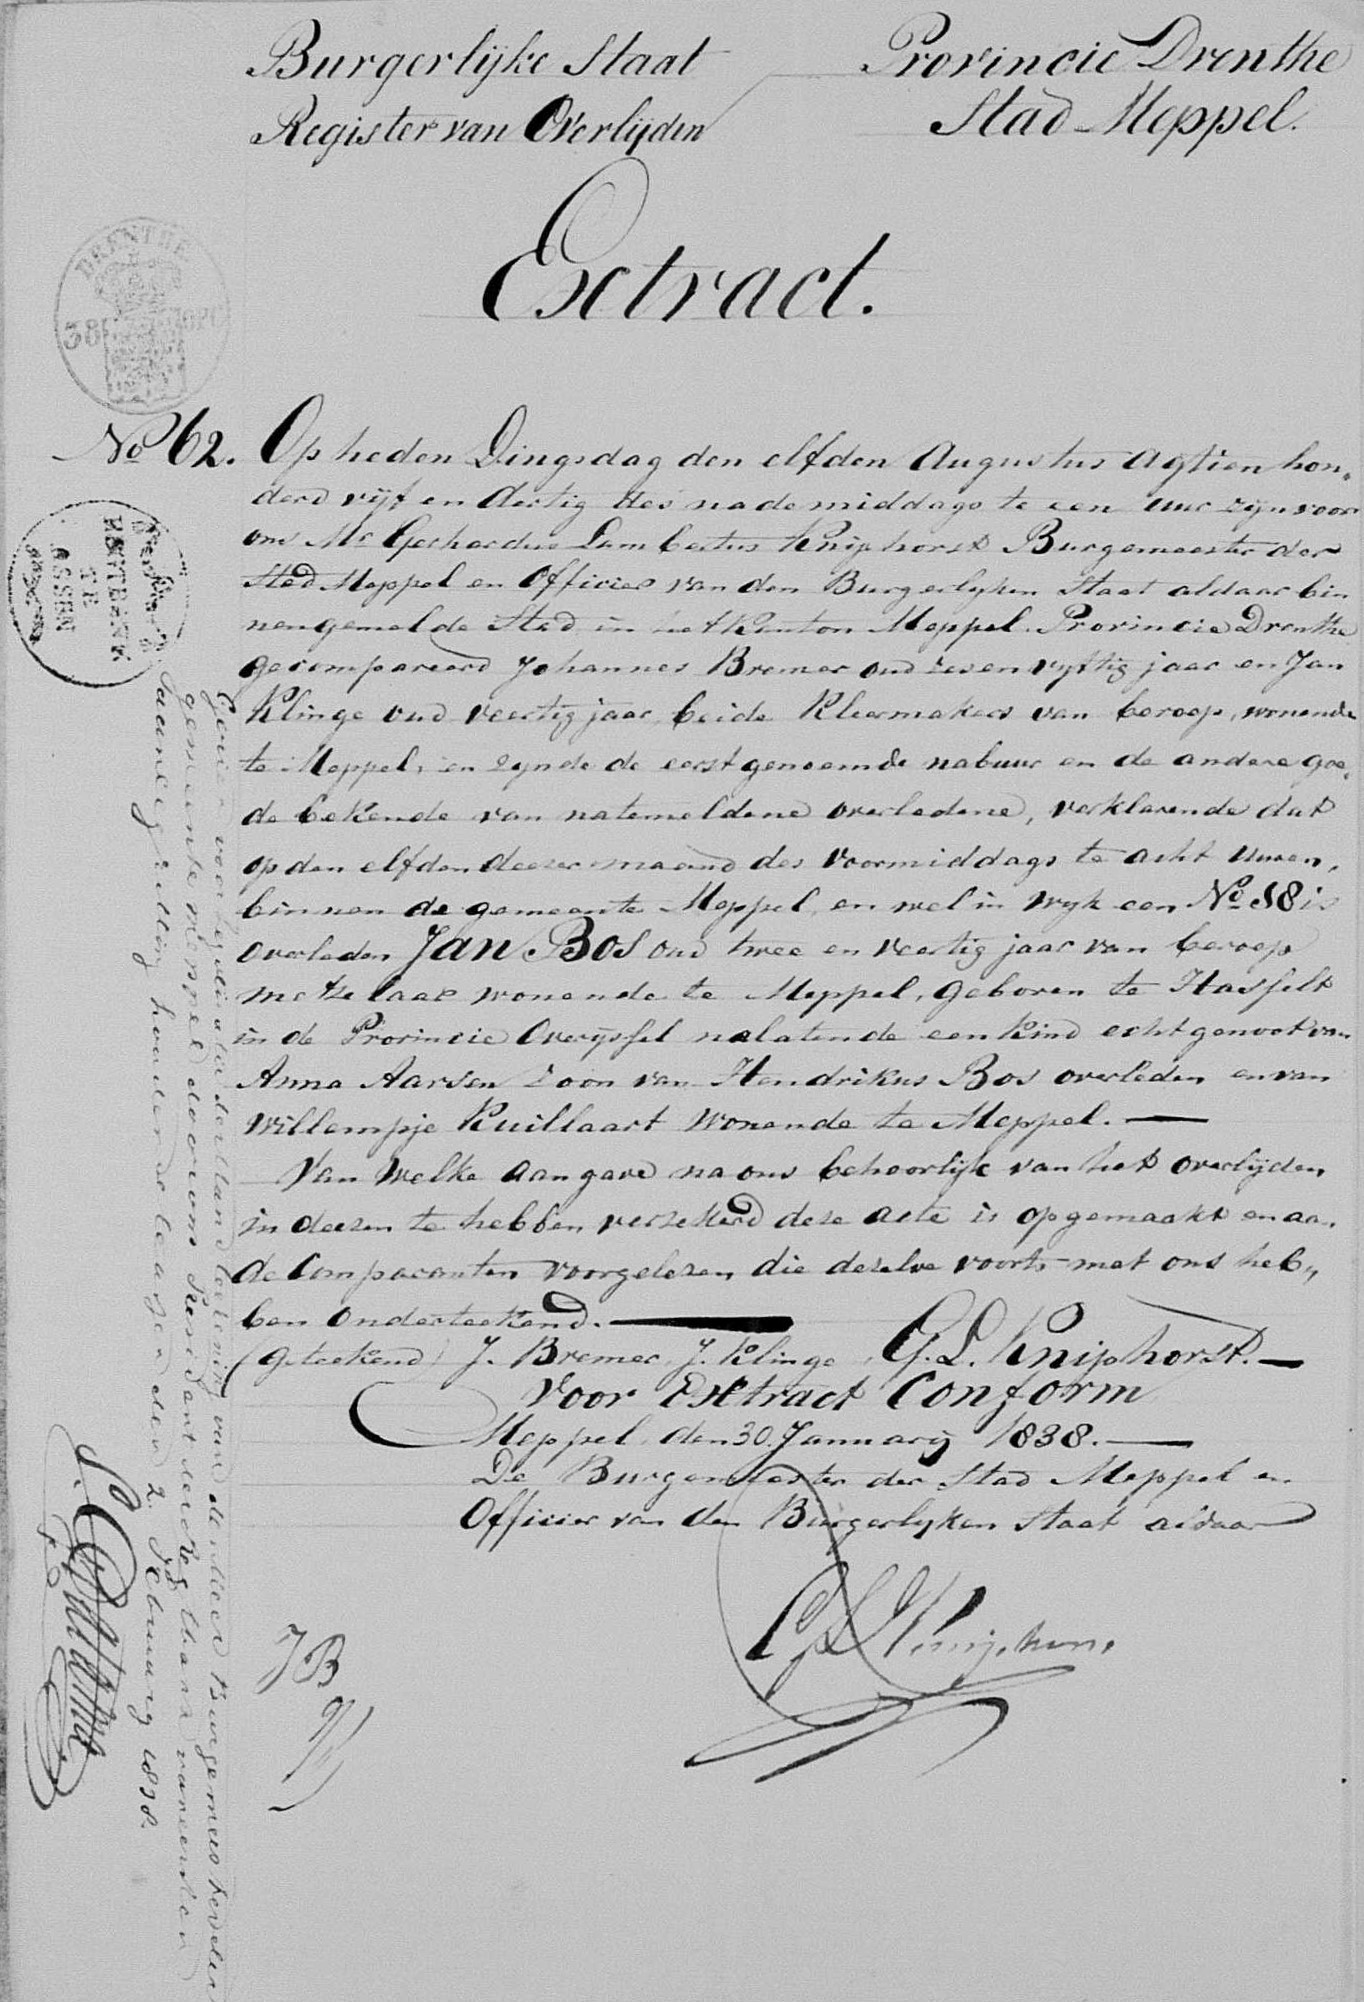 Burgerlijke Staat
Register van Overlijden
Provincie Drenthe
Stad Meppel.
Extract.
DRENTHE
38
No 62. Op heden Dingsdag den elfden Augustus agtien hon„
derd vijf en dertig des nademiddags te een uur zijn voor
ons Mr Gerhardus Lambertus Kniphorst Burgemeester der
Stad Meppel en Officier van den Burgerlyken Staat aldaar bin
nengemelde Stad in het Kanton Meppel Provincie Drenthe
gecompareerd Johannes Bremer oud zes en vyftig jaar en Jan
Klinge oud veertig jaar, beide Kleermakers van beroep, wonende
te Meppel, en zynde de eerstgenoemde nabuur en de andere goe„
de bekende van natemeldene overledene, verklarende dat
op den elfden deezer maand des voormiddags te acht uuren,
binnen de gemeente Meppel, en wel in wyk een No 18 is
overleden Jan Bos oud twee en veertig jaar van beroep
metzelaar wonende te Meppel, geboren te Hasselt
in de Provincie Overyssel nalatende een kind echtgenoot van
Anna Aarsen zoon van Hendrikus Bos overleden en van
Willempje Kuillaart wonende te Meppel. —
Van welke aangave na ons behoorlijk van het overlijden
in deezen te hebben verzekerd deze acte is opgemaakt en aan
de Comparanten voorgelezen die dezelve voorts met ons heb„
ben onderteekend. —
(Geteekend) J. Bremer, J. Klinge, G. L. Kniphorst. —
Voor Extract Conform
Meppel den 30 January 1838. —
De Burgemeester der Stad Meppel en
Officier van den Burgerlyken Staat aldaar
GLKniphorst
JB
TE
ASSEN
Gezien voor legalisatie der handteekening van den Heer Burgemeester der
gemeente Meppel door ons President der Regtbank van eersten
aanleg zitting houdende te Assen den 2 February 1838.